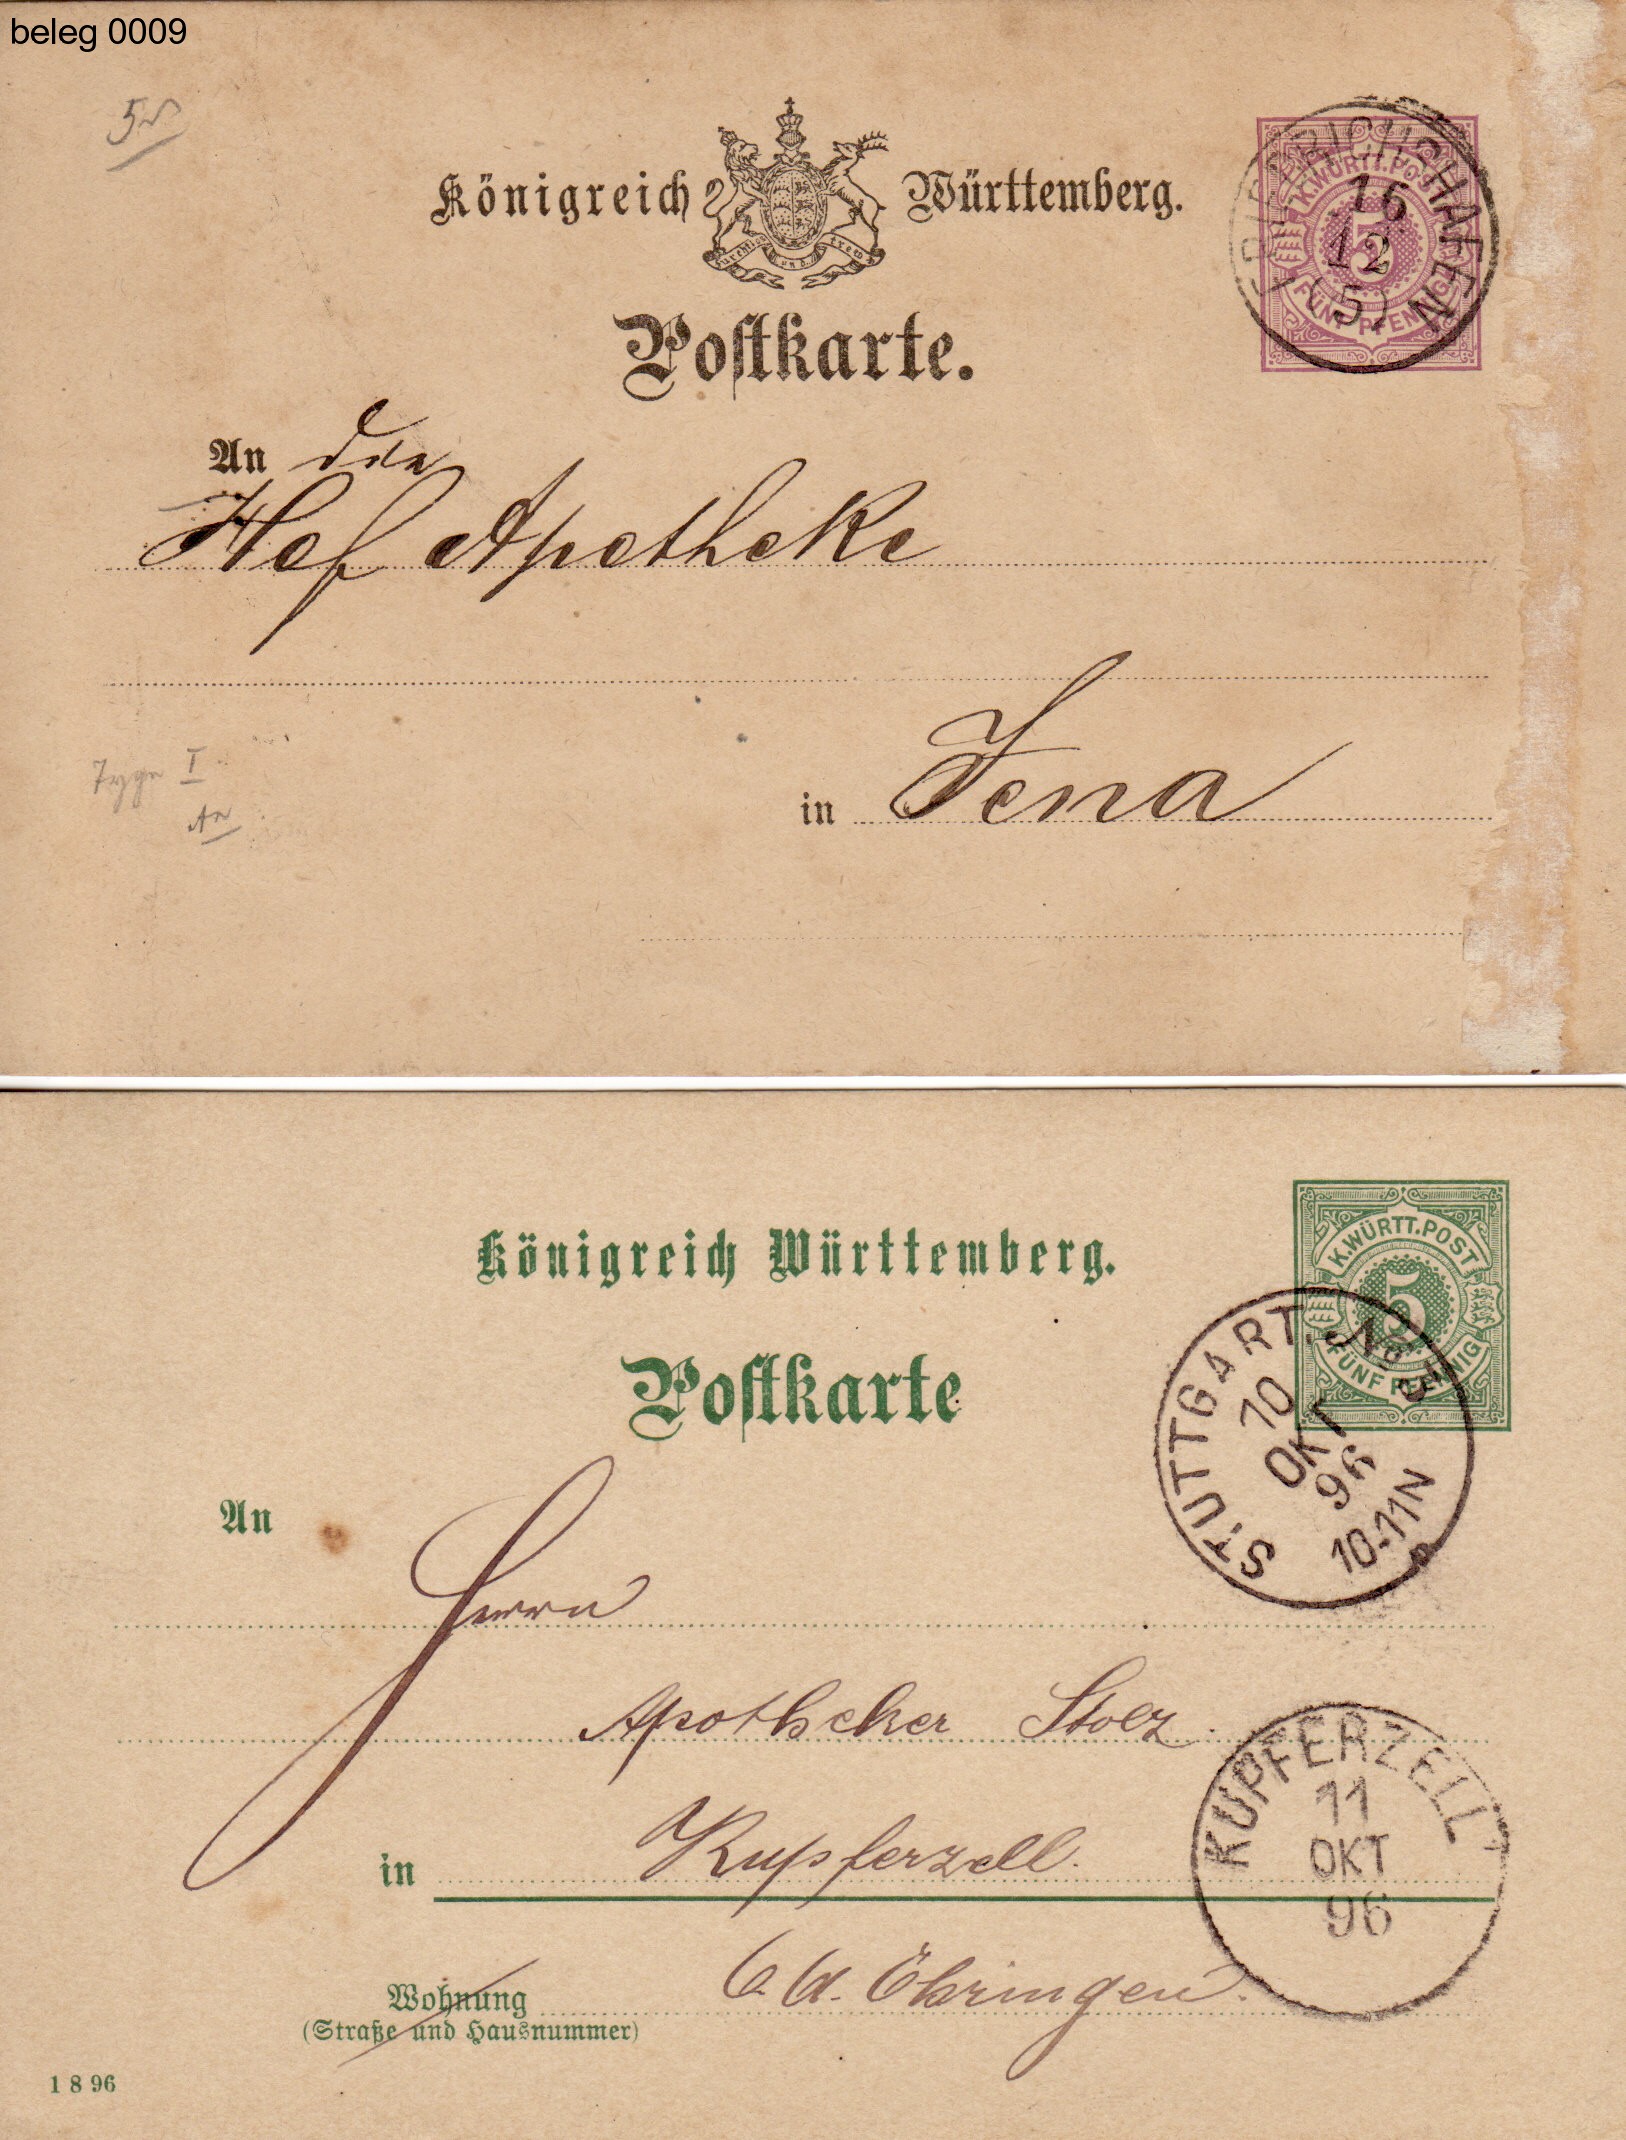 beleg 0009
Königreich Württemberg.
furchtlos und trew
Postkarte.
K.WÜRTT.POST
5
FÜNF PFENNIG
FRIEDRICHSHAFEN
16
12
(5)
An die
Hof Apotheke
in Jena
Type I
An
Königreich Württemberg.
Postkarte
K.WÜRTT.POST
5
FÜNF PFENNIG
STUTTGART. No 5
10
OKT
96
10-11N
An
Herrn
Apotheker Stolz.
in Kupferzell.
O. A. Öhringen.
Wohnung
(Straße und Hausnummer)
KUPFERZELL
11
OKT
96
1 8 96